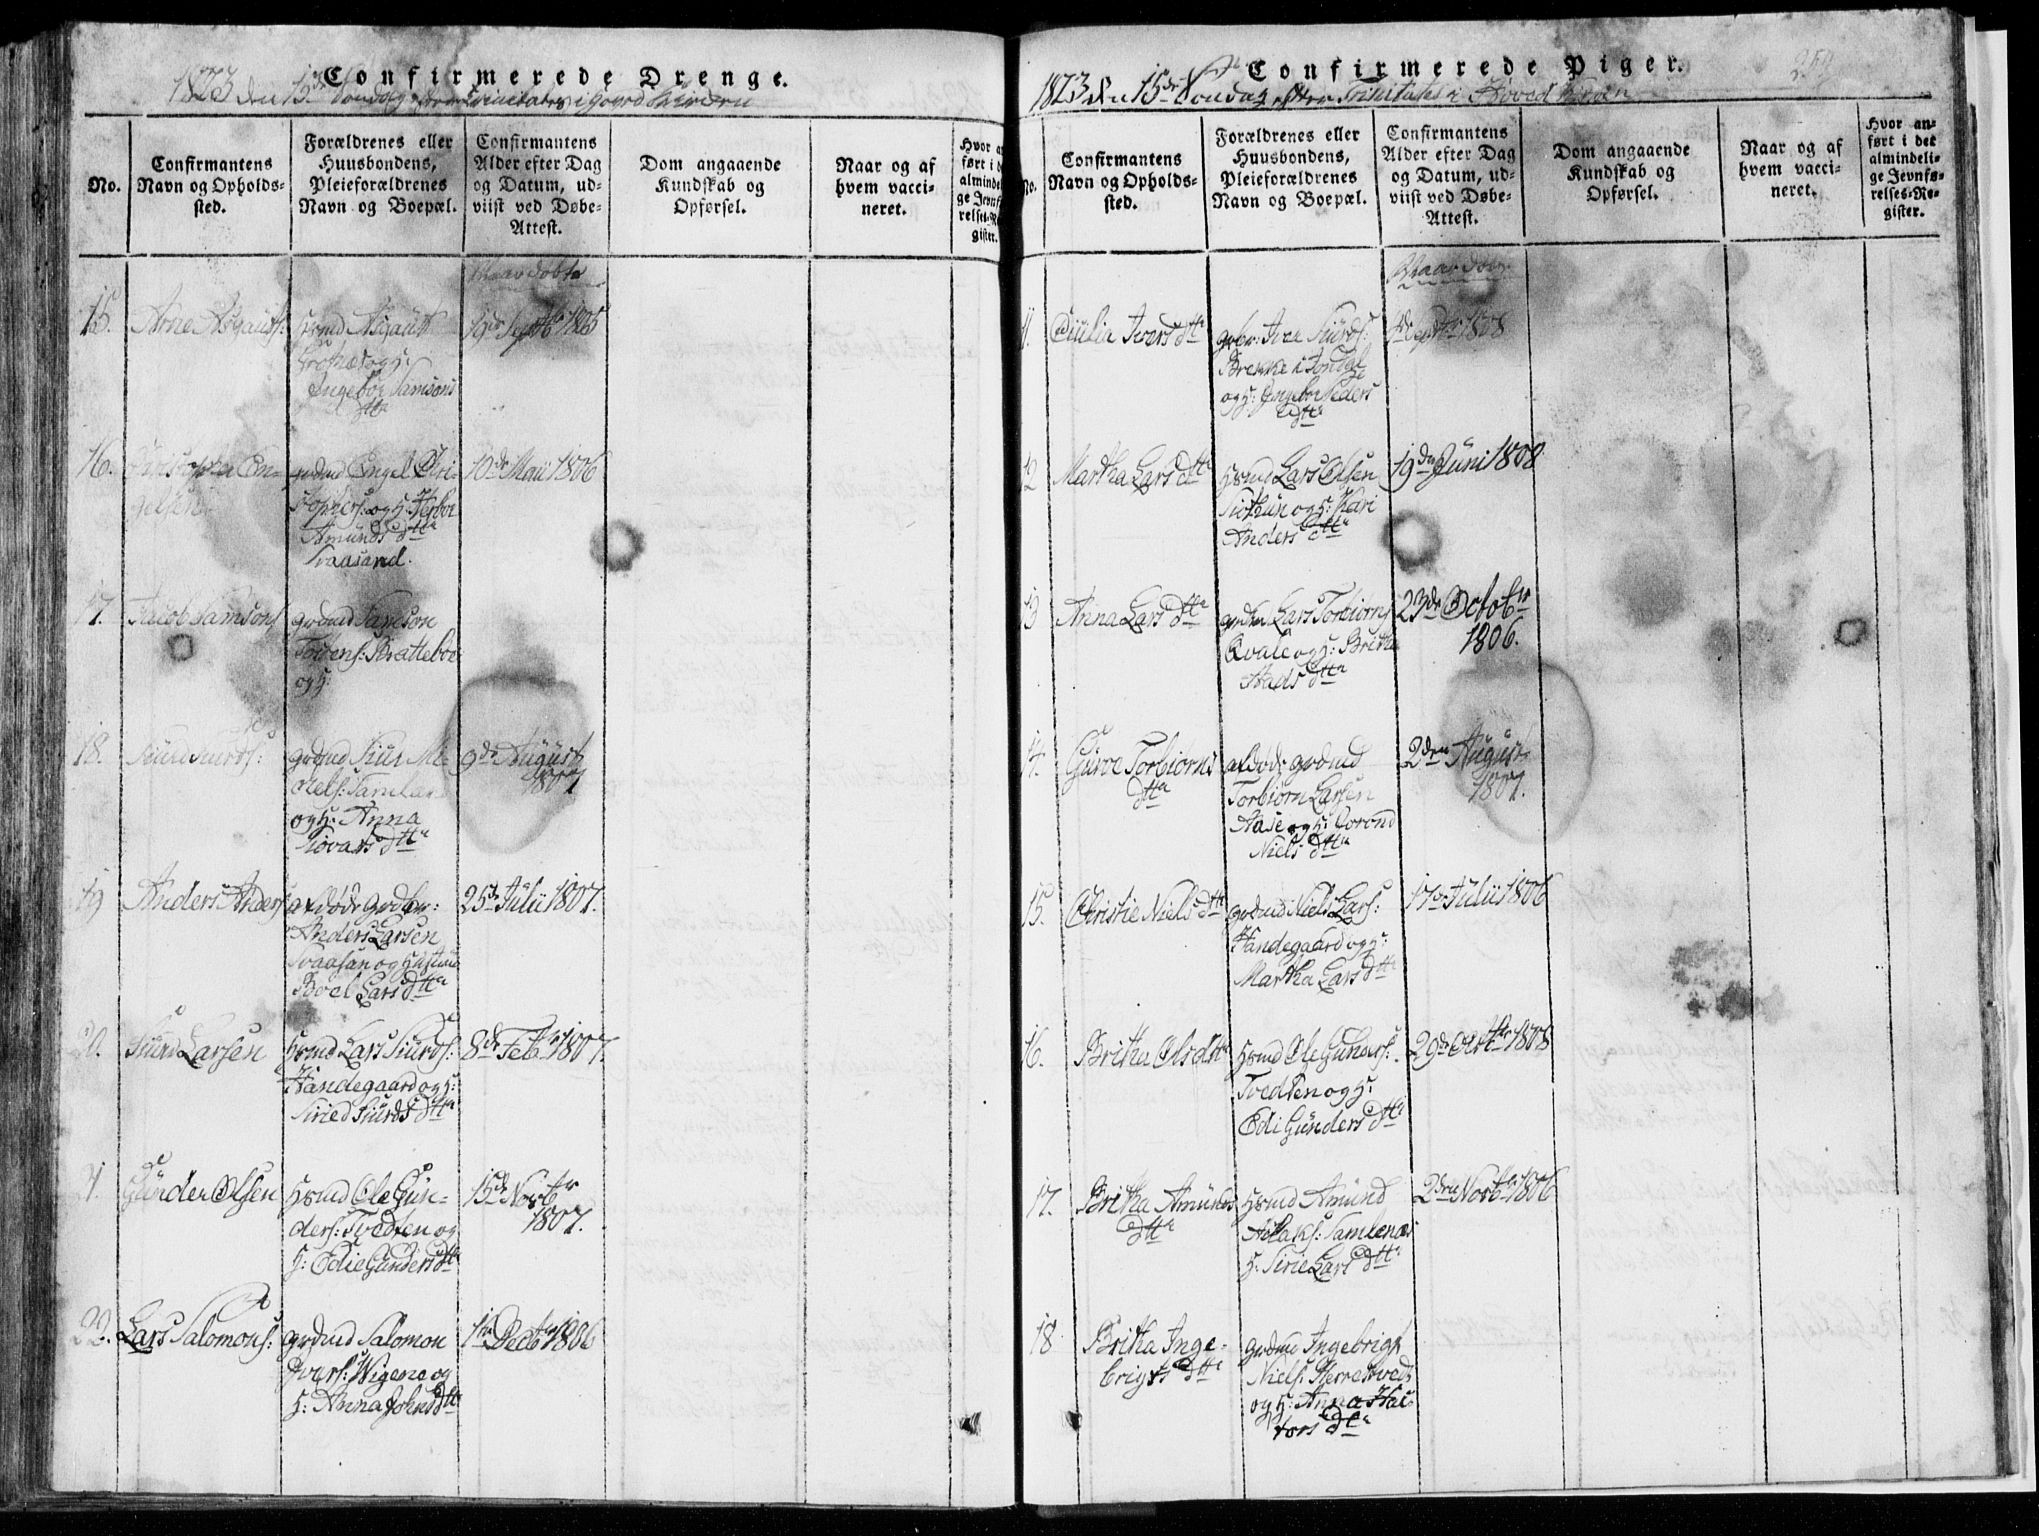 Confirmerede Drenge.
1823 den 15de Søndag
No.
Confirmantens Navn og Opholds-sted.
Forældrenes eller Huusbondens, Pleieforældrenes Navn og Boepæl.
Confirmantens Alder efter Dag og Datum, ud-viist ved Døbe-Attest.
Dom angaaende Kundskab og Opførsel.
Naar og af hvem vacci-neret.
Naar døbte
15.
Arne Asgauts:
Hsmd Asgaut
og H:
Ingebor Samsons
dtr
1805
16.
En-
gelsen
grdmd Engel Chri-
stophers: og H: Herbor
Amunds dtr
Svaasand.
10de Maii 1806
17.
Jacob Samsons
grdmd Samson
Torstens: Brattebøe
og H:
18.
Siurd Siurds:
grdmd Siur Mi-
chels:
og H: Anna
Siovats dtr
9de August
1807
19
Anders Anders
afdøde grdbr:
Anders Larsen
Svaasan og Hustrue
Boel Lars dtr
25de Julii 1807.
20.
Siurd Larsen
Hsmd Lars Siurds:
Handegaard og H:
Siried Siurds dtr
8de Febr 1807.
21.
Gunder Olsen
Hsmd Ole Gun-
ders: Tvedten og
H: Edie Gunders dtr
15de Novbr
1807.
22.
Lars Salomons:
grdmd Salomon
Ivers: Wigene og
H: Anna Johns dtr
1te Decbr 1806
Confirmerede Piger.
1823 den 15de Søndag efter Trinitatis i Hoved Kirken
No.
Confirmantens Navn og Opholds-sted.
Forældrenes eller Huusbondens, Pleieforældrenes Navn og Boepæl.
Confirmantens Alder efter Dag og Datum, ud-viist ved Døbe-Attest.
Dom angaaende Kundskab og Opførsel.
Naar og af hvem vacci-neret.
Hvor an-ført i det almindeli-ge Jevnfø-relses-Re-gister.
Naar døbt.
11.
Ivers dtr
Brekke i Jondal
og H: Ingebor Peders
dtr
1808
12
Martha Lars dtr
Hsmd Lars Olsen
og H: Kari
Anders dtr
19de Juni 1808
13
Anna Lars dtr
Lars Torbiørns
Qvale og H: Britha
Mads dtr
23de Octobr
1806.
14.
Giurve Torbiørns
dtr
afdøde grdmd
Torbiørn Larsen
Aase og H: Gorond
Niels dtr
2den August
1807.
15.
Christie Niels dtr
grdmd Niels Lars:
Handegaard og H:
Martha Lars dtr
17de Julii 1806
16.
Britha Ols dtr
Hsmd Ole Gunders:
Tvedten og H:
Edi Gunders dtr
29de Octbr 1808
17.
Britha Amunds
dtr
Hsmd Amund
Aslaks: Samlenæs
H: Sirie Lars dtr
2den Novbr 1806
18
Britha Inge-
brigts dtr
grdmd Ingebrigt
Niels: Herrestvedt
og H: Anna Hal-
vors dtr